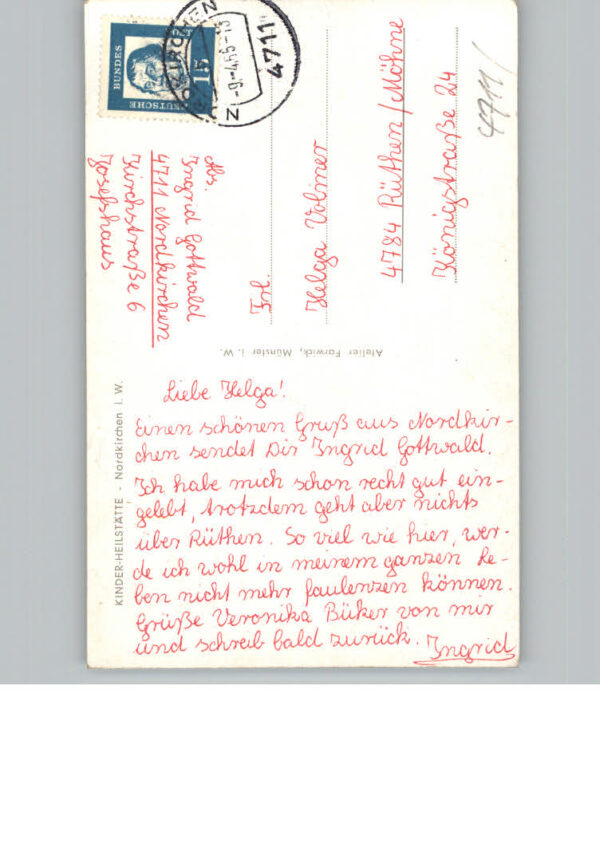 Liebe Helga!
Einen schönen Gruß aus Nordkir-
chen sendet Dir Ingrid Gottwald.
Ich habe mich schon recht gut ein-
gelebt, trotzdem geht aber nichts
über Rüthen. So viel wie hier, wer-
de ich wohl in meinem ganzen Le-
ben nicht mehr faulenzen können.
Grüße Veronika Büker von mir
und schreib bald zurück. Ingrid
KINDER-HEILSTÄTTE - Nordkirchen i. W.
Atelier Farwick, Münster i. W.
Abs.
Ingrid Gottwald
4711 Nordkirchen
Kirchstraße 6
Josefshaus
Frl.
Helga Volmer
4784 Rüthen/Möhne
Königstraße 24
4711/
DEUTSCHE
BUNDES
15
4711